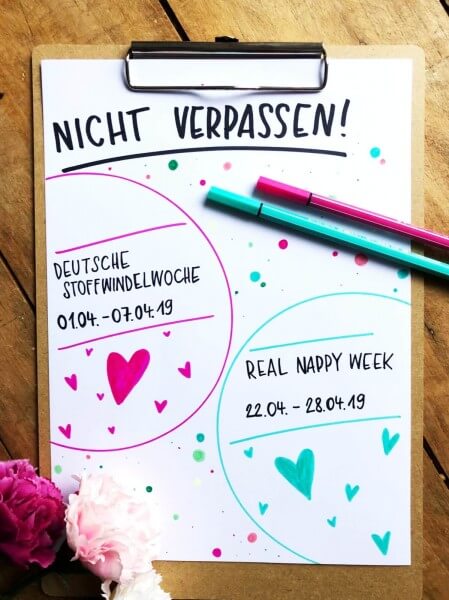 NICHT VERPASSEN!
DEUTSCHE
STOFFWINDELWOCHE
01.04.-07.04.19
REAL NAPPY WEEK
22.04. - 28.04.19